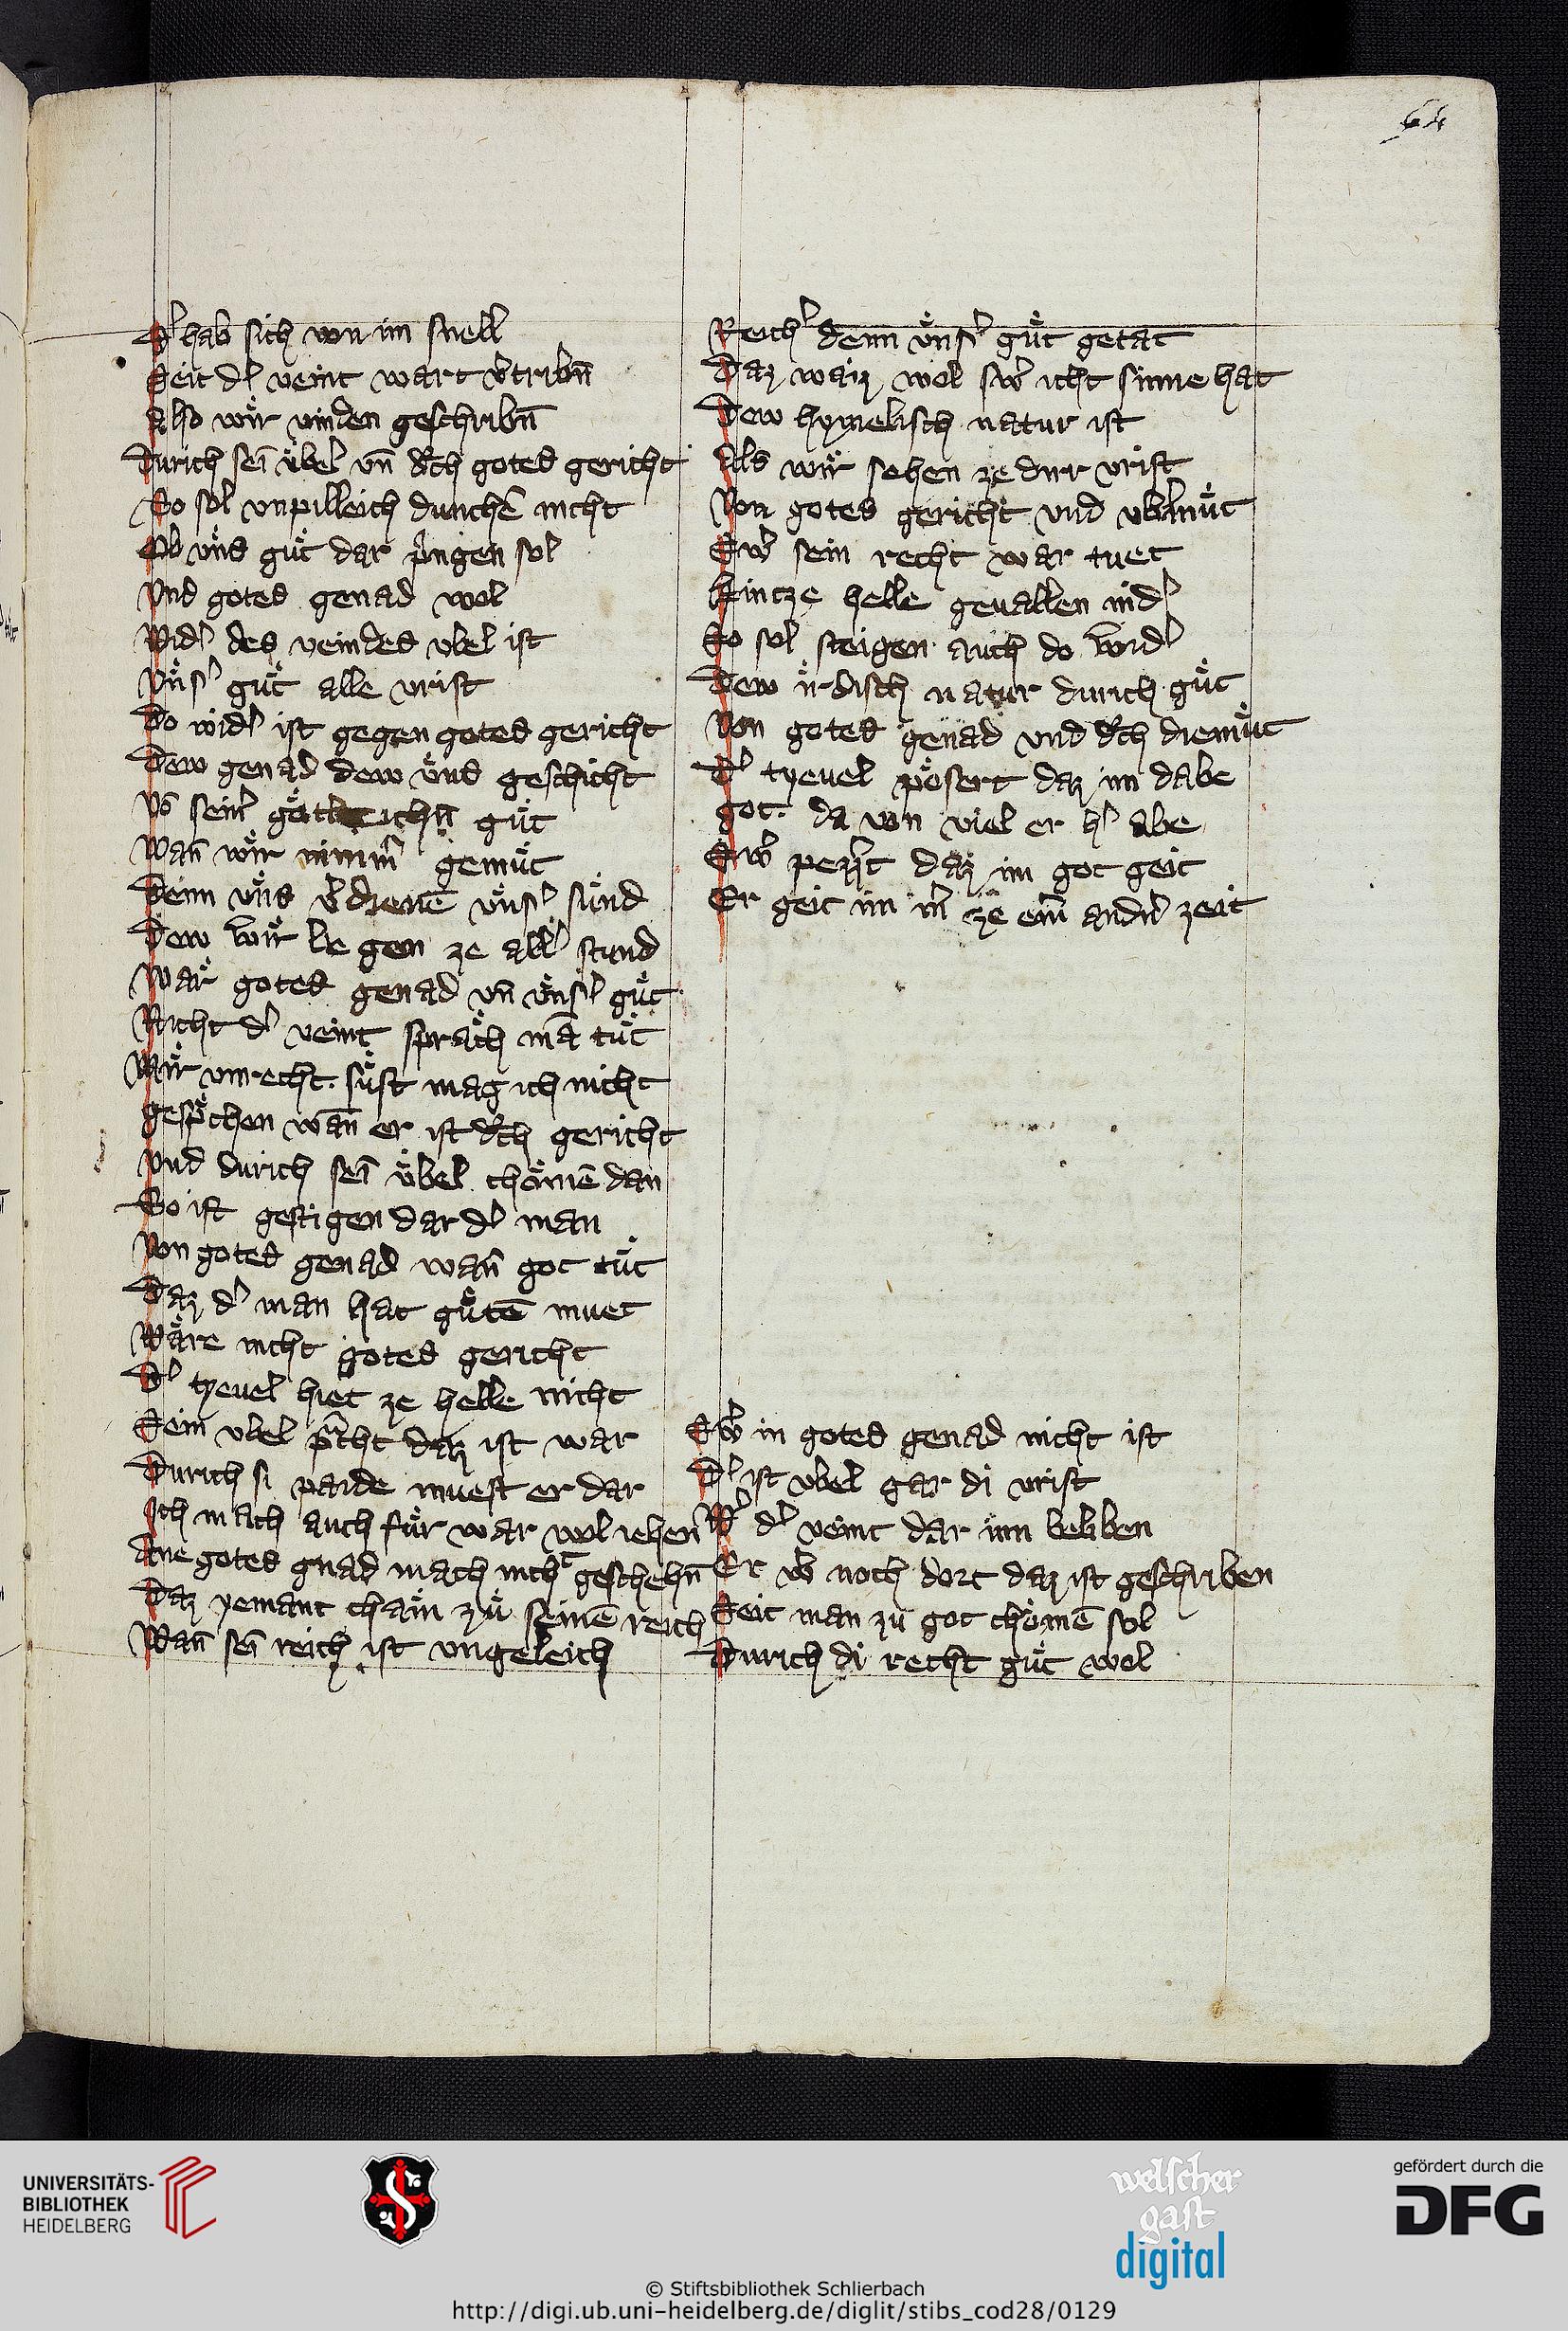 64
Er hab sich von im snell
Seit d' veint wart v'tribn̄
Also wir vinden geschribn̄
Durich sei̅ u̎bel vn̄ d'ch gotes gericht
So sol vnpilleich dunche̅ nicht
Ob vns gu̎t dar pringen sol
Vnd gotes genad wol
Wid' des veindes vbel ist
Vns' gu̎t alle vrist
Do wid' ist gegen gotes gericht
Dew genad dew vns geschicht
Vo̅ sein' gutleichn̄ gu̎t
Wan̄ wir nimm' gemu̎t
Denn vns v'diene̅ vns' sund
Dew wir be gen ze all' stund
War gotes genad vn̄ vns' gu̎t
Nicht d' veint sprach ma̅ tu̎t
Mir vnrecht. sust mag ich nicht
gesp'chen wan̄ er ist d'ch gericht
Vnd durich sei̅ u̎bel chome̅ dan
So ist gestigen dar d' man
Von gotes genad wan̄ got tu̎t
Daz d' man hat gu̎te̅ muet
Wäre nicht gotes gericht
D' tyeuel hiet ze helle nicht
Sein vbel p'cht daz ist war
Durich si paide muest er dar
Ich mach auch fur war wol iehen
Ane gotes gnad mach nicht geschehn̄
Daz yemant cham zu̎ seine̅ reich
Wan̄ sei̅ reich ist vngeleich
Reich' denn vns' gu̎t getat
Daz waiz wol sw' icht sinne hat
Dew hymelisch natur ist
Als wir sehen ze dirr vrist
Von gotes gericht vnd vb'lmu̎t
Sw' sein recht war tuet
Hintze helle geuallen nid'
So sol steigen auch do wid'
Dew irdisch natur durich gu̎t
Von gotes genad vnd d'ch diemu̎t
D' tyeuel pösert daz im dabe
got. da von viel er h' abe
Sw' pezz't daz im got geit
Er geit im m' ze ein' and'n zeit
Sw' in gotes genad nicht ist
D' ist vbel gar di vrist
W' d' veint dar inn beliben
Er w' noch dort daz ist geschriben
Seit man zu got chome̅ sol
Durich di recht gu̎t wol
UNIVERSITÄTS-
BIBLIOTHEK
HEIDELBERG
welscher
gast
digital
gefördert durch die
DFG
© Stiftsbibliothek Schlierbach
http://digi.ub.uni-heidelberg.de/diglit/stibs_cod28/0129